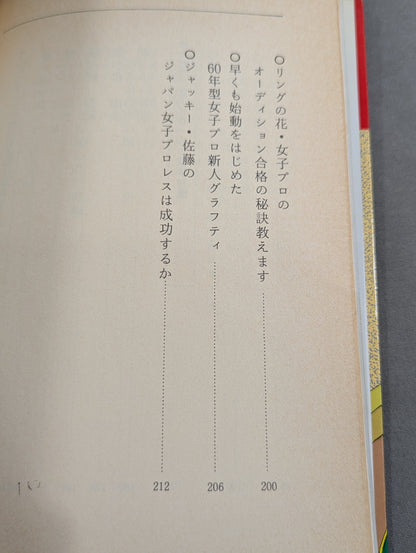 ○リングの花・女子プロの
オーディション合格の秘訣教えます……200
○早くも始動をはじめた
60年型女子プロ新人グラフティ……206
○ジャッキー・佐藤の
ジャパン女子プロレスは成功するか……212